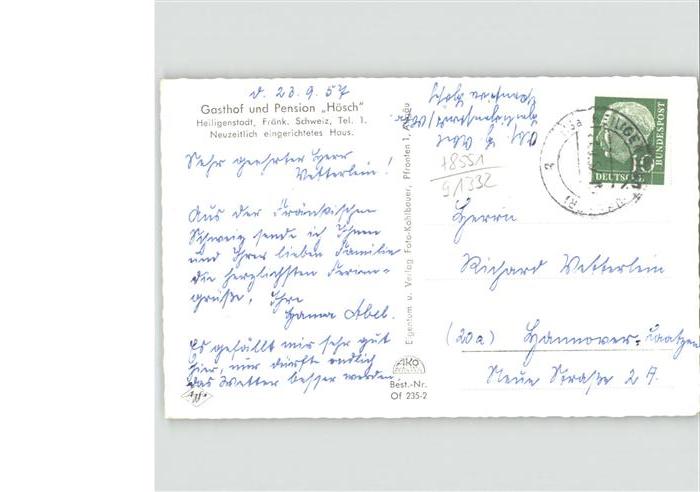 d. 23.9.57
Gasthof und Pension „Hösch"
Heiligenstadt, Fränk. Schweiz, Tel. 1.
Neuzeitlich eingerichtetes Haus.
Sehr geehrter Herr
Vetterlein!
Aus der Fränkischen
Schweiz sende ich Ihnen
und Ihrer lieben Familie
die herzlichsten Ferien-
grüße, Ihre
Hanna Abel.
Es gefällt mir sehr gut
hier, nur dürfte endlich
das Wetter besser werden.
Eigentum u. Verlag Foto-Kohlbauer, Pfronten 1, Allgäu
AKO
Best.-Nr.
Of 235-2
Agfa
Pension Hösch
78551
91332
DEUTSCHE
BUNDESPOST
10
Herrn
Richard Vetterlein
(20a) Hannover-Laatzen
Neue Straße 2 A.